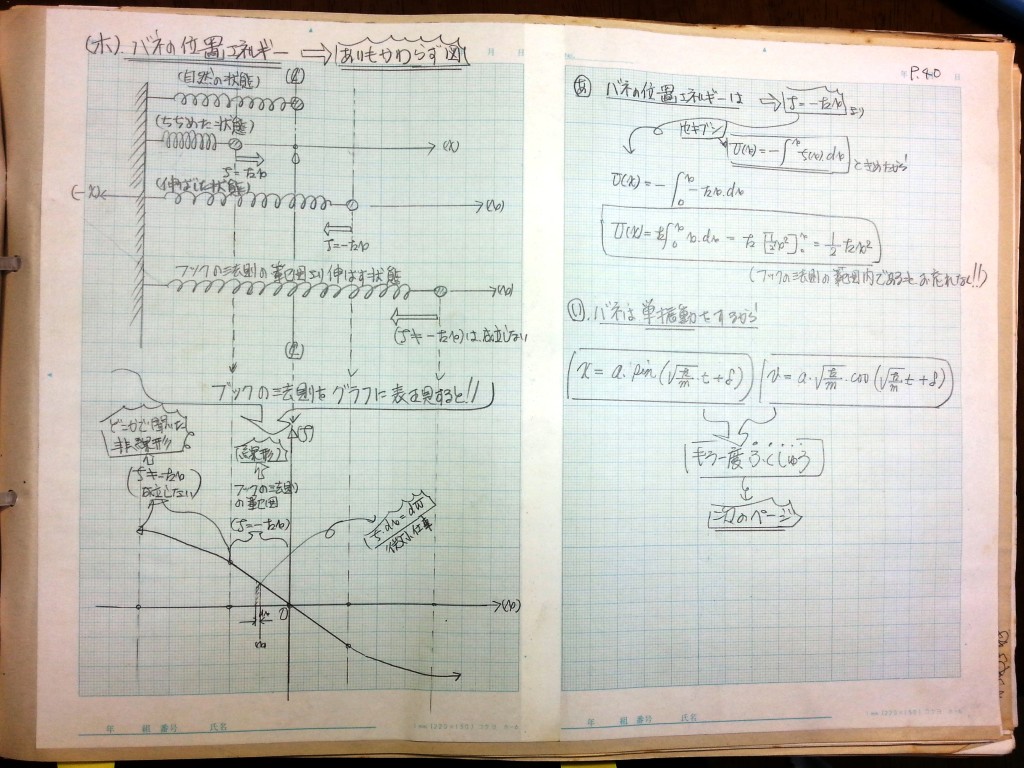 (ホ). バネの位置エネルギー ⇒ ありもやわらず図
(自然の状態)
(ℓ)
(ちぢめた状態)
(x)
f=-kx
(伸ばした状態)
(-x)
(x)
f=-kx
フックの法則の範囲より伸ばす状態
(x)
(f≠-kx)は成立しない
(ℓ)
フックの法則をグラフに表現すると!!
(f)
どこかで聞いた
非線形
(線形)
(f≠-kx
成立しない)
フックの法則
の範囲
(f=-kx)
f・dx=dW
微小仕事
O
(x)
dx
x
年 組 番号 氏名
P.40
あ バネの位置エネルギーは ⇒ f=-kx より
セキブン
U(x)=-∫f(x).dx ときめたから
U(x)=-∫₀ˣ-kx.dx
U(x)=k∫₀ˣx.dx=k[½x²]₀ˣ=½kx²
(フックの法則の範囲内であることお忘れなく!!)
い. バネは単振動をするから
x=a.sin(√k/m.t+δ) v=a.√k/m.cos(√k/m.t+δ)
もう一度ふくしゅう
次のページ
年 組 番号 氏名